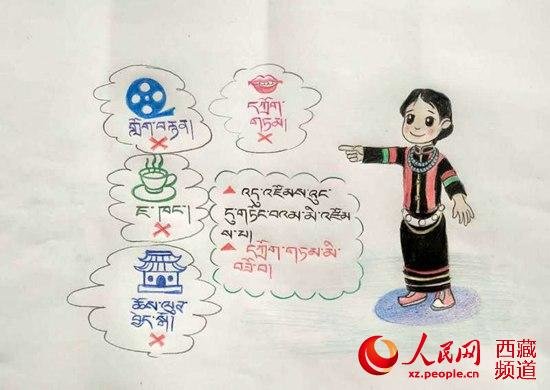 གློག་བརྙན།
དཀྲོག་
གཏམ།
ཇ་ཁང་།
▲འདུ་འཛོམས་ཉུང་
དུ་གཏོང་བའམ་མི་འཛོམ
ས་པ།
▲དཀྲོག་གཏམ་མི་
བཟོ་བ།
ཆོས་
བྱེད་སྒོ།
人民网 西藏
频道
xz.people.cn